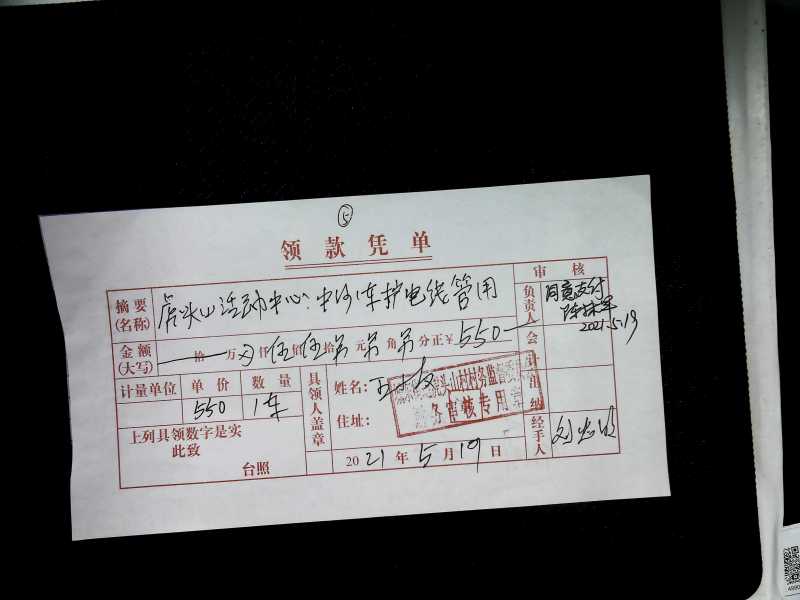 ⑤
领款凭单
摘要(名称) 虎头山活动中心中沙1车护电线管用
审核
负责人 同意支付
2021.5.19
金额(大写) 拾万仟伍佰伍拾元角分正¥550
会计
计量单位 单价 数量
550 1车
具领人盖章
姓名:
住址:
村务监督委员
务审核专用章
出纳
上列具领数字是实
此致
台照
2021年5月19日
经手人